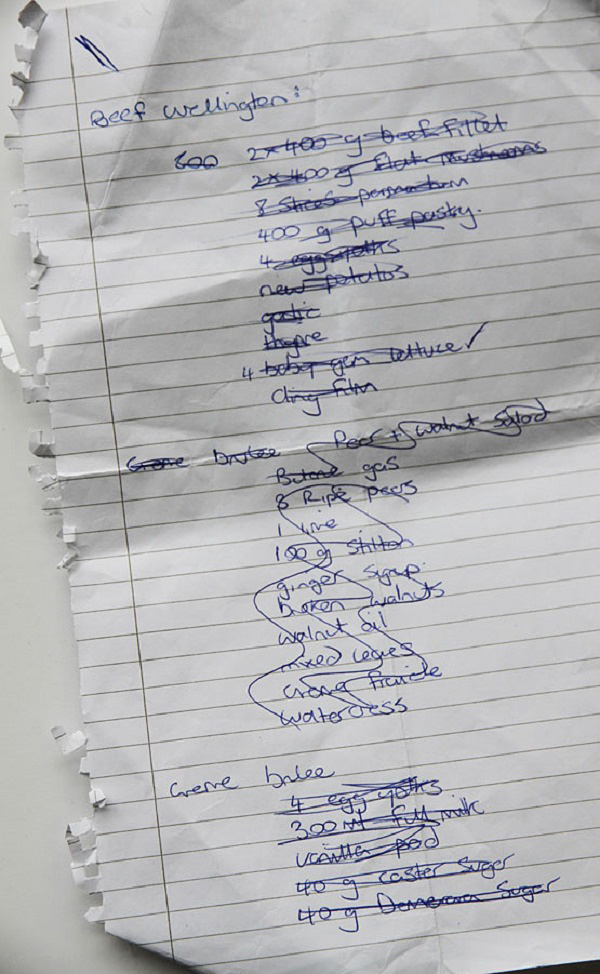 Beef Wellington:
800 2x400 g beef fillet
2x400 g flat mushrooms
8 slices parma ham
400 g puff pasty.
4 egg yolks
new potatos
garlic
thyme
4 baby gem lettuce ✓
Cling film
Creme brulee Pear + walnut salad
Butane gas
8 Ripe pears
1 lime
100 g stilton
ginger syrup.
broken walnuts
walnut oil
mixed leaves
creme fraiche
watercress
Creme brulee
4 egg yolks
300 ml full milk
vanilla pod
40 g caster sugar
40 g Demerara Sugar